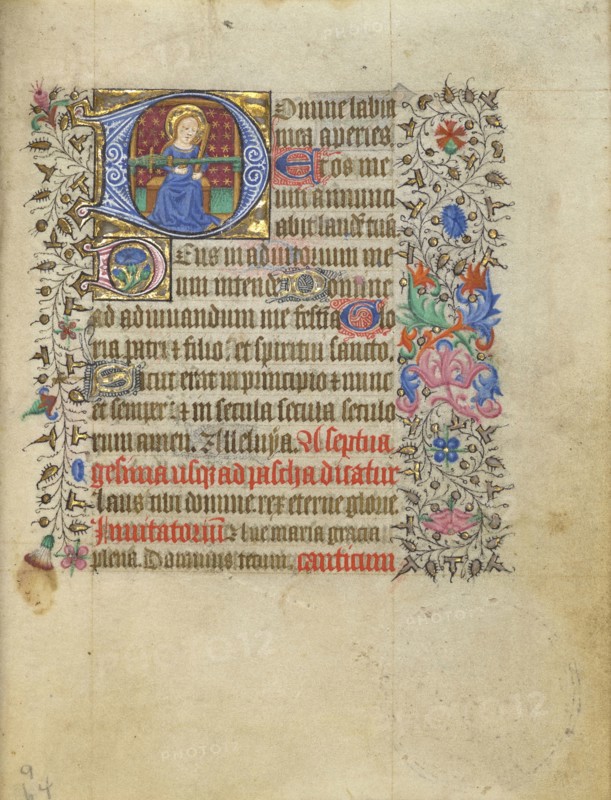 Domine labia
mea aperies
Et os me
um annunci
abit laudē tuā
Deus in adiutorium me
um intende Domine
ad adiuuandum me festia Glo
ria patri ⁊ filio. et spiritui sancto.
Sicut erat in principio ⁊ nunc
et semper: ⁊ in secula seculo
rum amen. Alleluya. A septua
gesima usqꝫ ad pascha dicatur
Laus tibi domine. rex eterne glorie
Inuitatoriū Aue maria gracia
plena. Dominus tecum. canticum
PHOTO12
PHOTO12
PHOTO12
PHOTO12
9
64